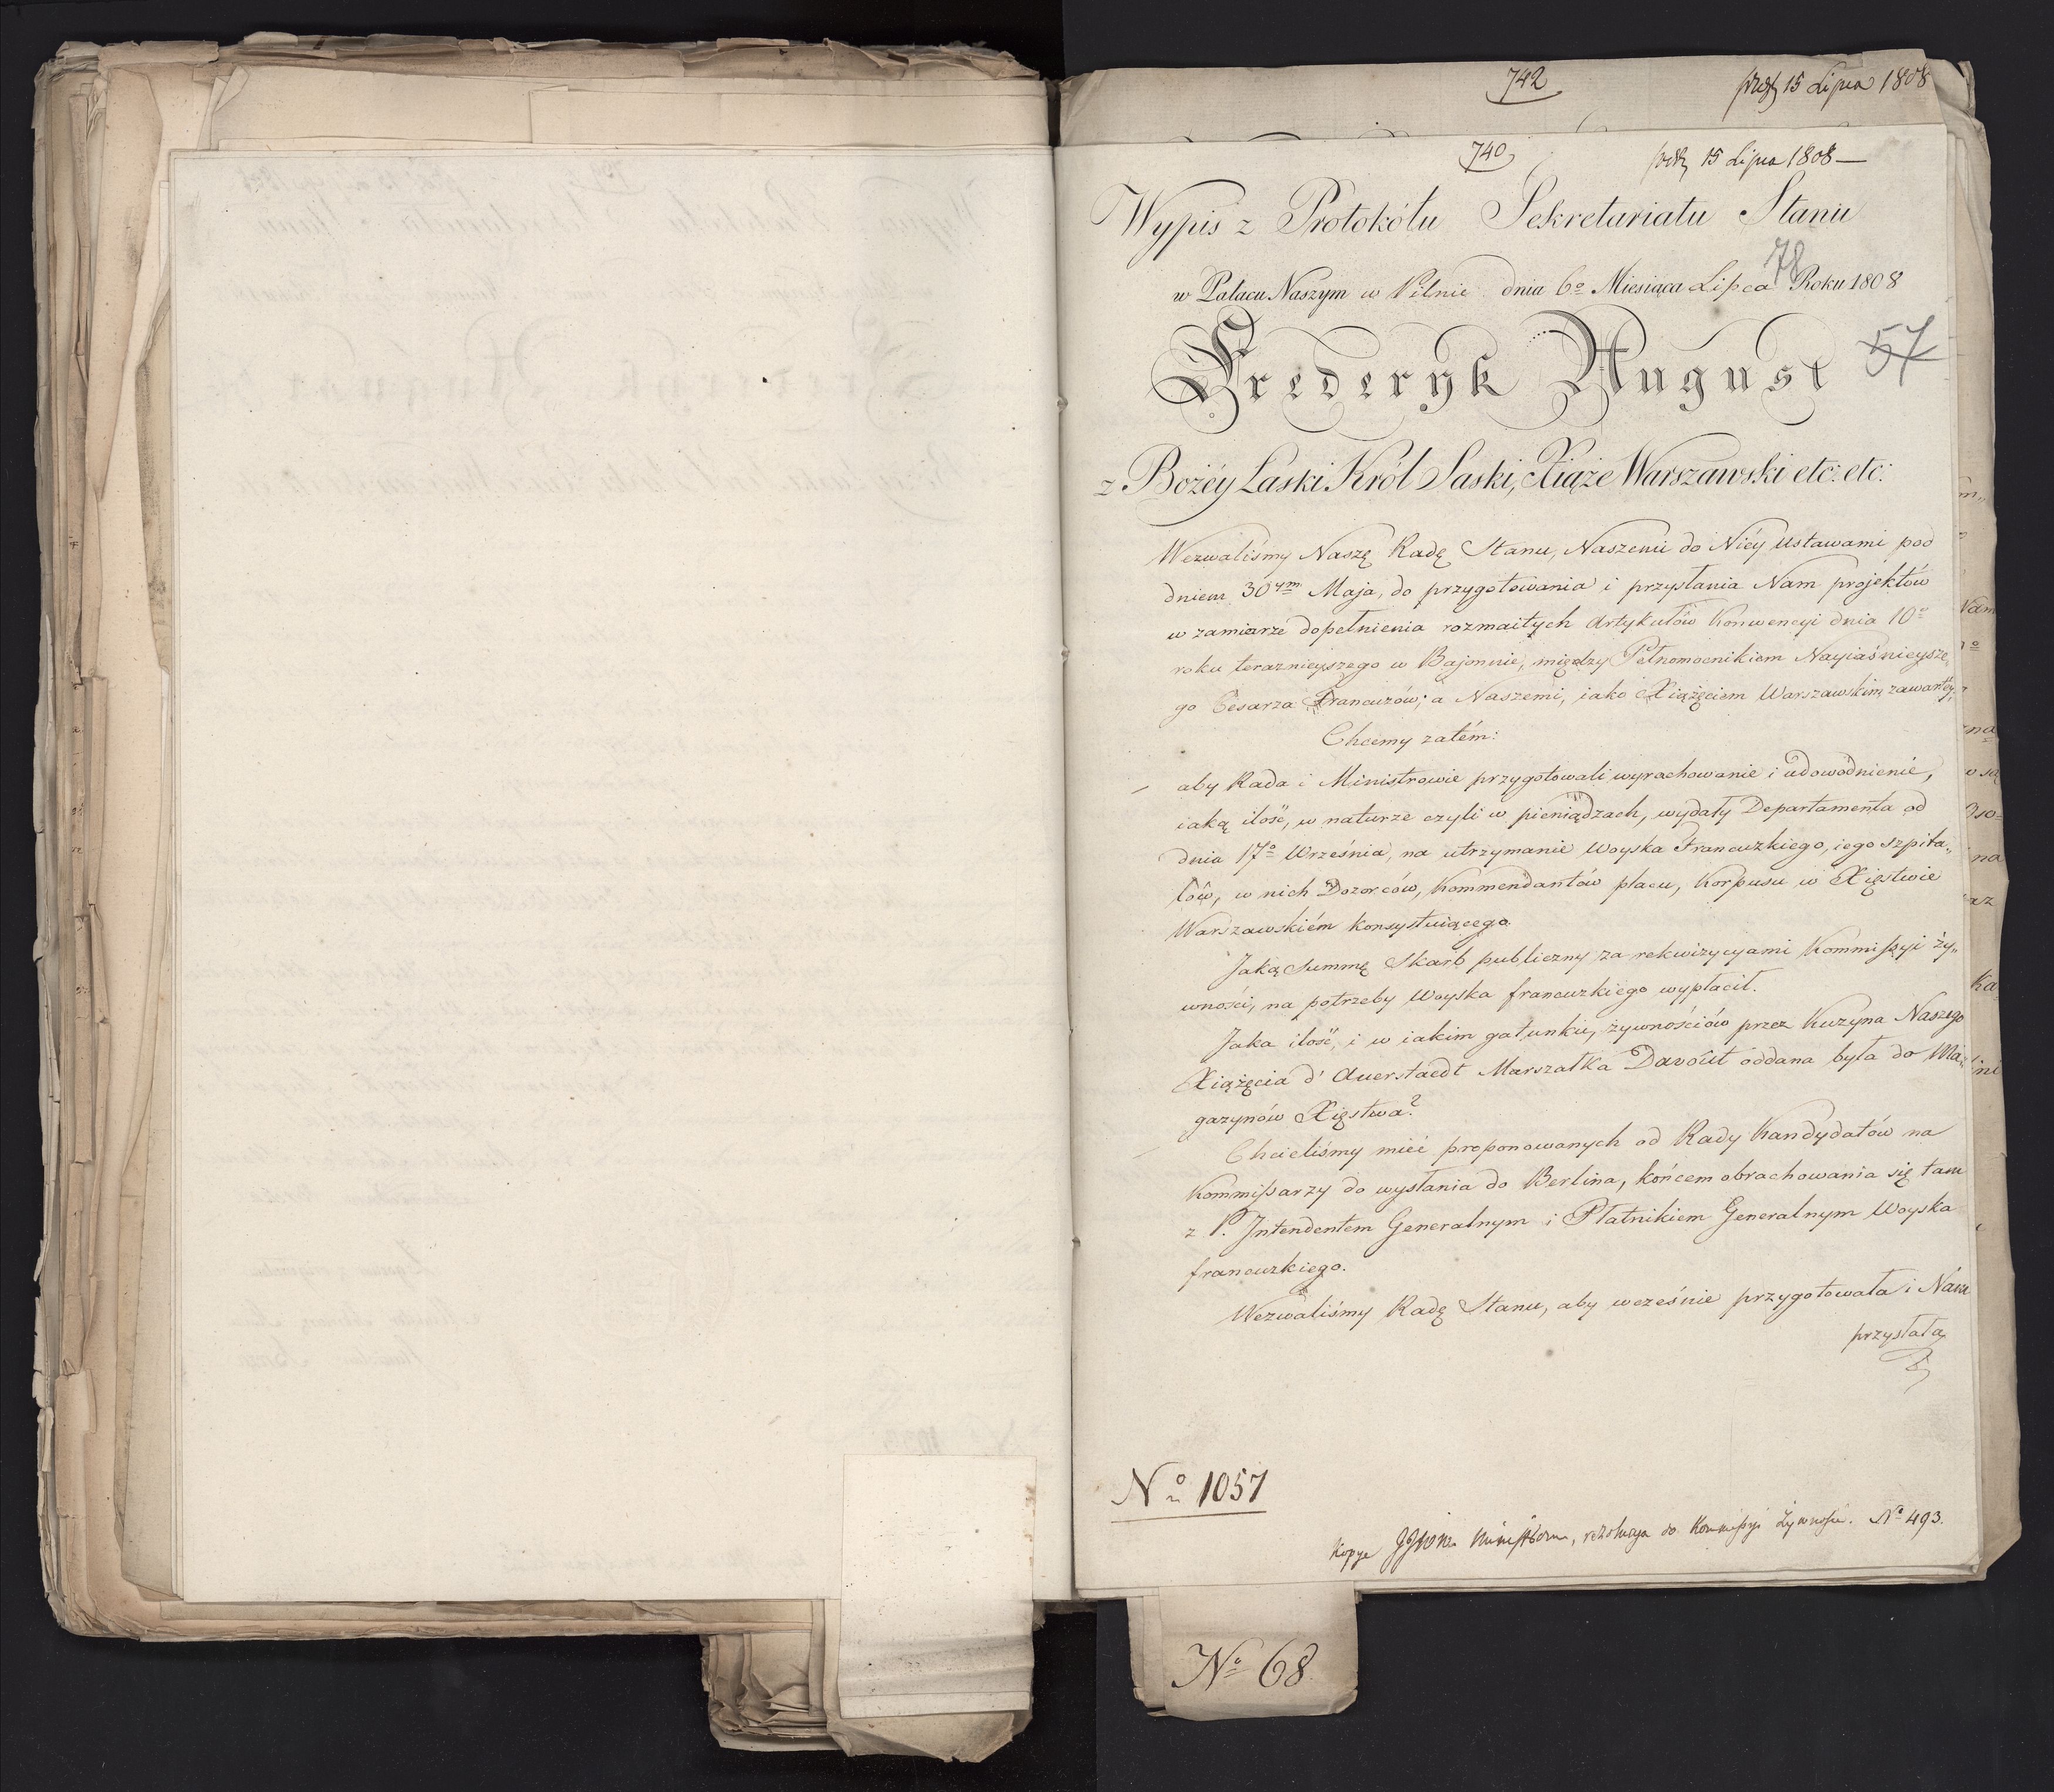 742
15 Lipca 1808
740
15 Lipca 1808 —
Wypis z Protokółu Sekretariatu Stanu
78
w Pałacu Naszym w Pilnic dnia 6o Miesiąca Lipca Roku 1808
57
Frederyk August
z Bożéy Łaski Król Saski, Xiąże Warszawski etc: etc:
Wezwaliśmy Naszę Radę Stanu, Naszemi do Niéy Ustawami pod
dniem 30ym Maja, do przygotowania i przysłania Nam projektów
w zamiarze dopełnienia rozmaitych Artykułów Konwencyi dnia 10o
roku teraznieyszego w Bajonnie, między Pełnomocnikiem Nayiaśnieysze„
go Cesarza Francuzów; a Naszemi, iako Xiążęciem Warszawskim zawartéy;
Chcemy zatém:
aby Rada i Ministrowie przygotowali wyrachowanie i udowodnienie,
iaką ilość, w naturze czyli w pieniądzach, wydały Departamenta od
dnia 17o Września, na utrzymanie Woyska Francuzkiego, iego szpita„
lów, w nich Dozorców, Kommendantów placu, Korpusu w Xięstwie
Warszawskiém konsystuiącego.
Jaką Summę Skarb publiczny za rekwizycyami Kommißyi ży„
wności, na potrzeby Woyska francuzkiego wypłacił.
Jaka ilość, i w iakim gatunku, żywnościów przez Kuzyna Naszego
Xiążęcia d' Auerstaedt Marszałka Davoût oddana była do Ma„
gazynów Xięstwa?
Chcieliśmy mieć proponowanych od Rady Kandydatów na
Kommißarzy do wysłania do Berlina, końcem obrachowania się tam
z P. Intendentem Generalnym i Płatnikiem Generalnym Woyska
francuzkiego.
Wezwaliśmy Radę Stanu, aby wcześnie przygotowała i Nam
przysłała
No 1057
Kopye Ministrom, rezolucya do Kommißyi Żywności. No 493.
No 68